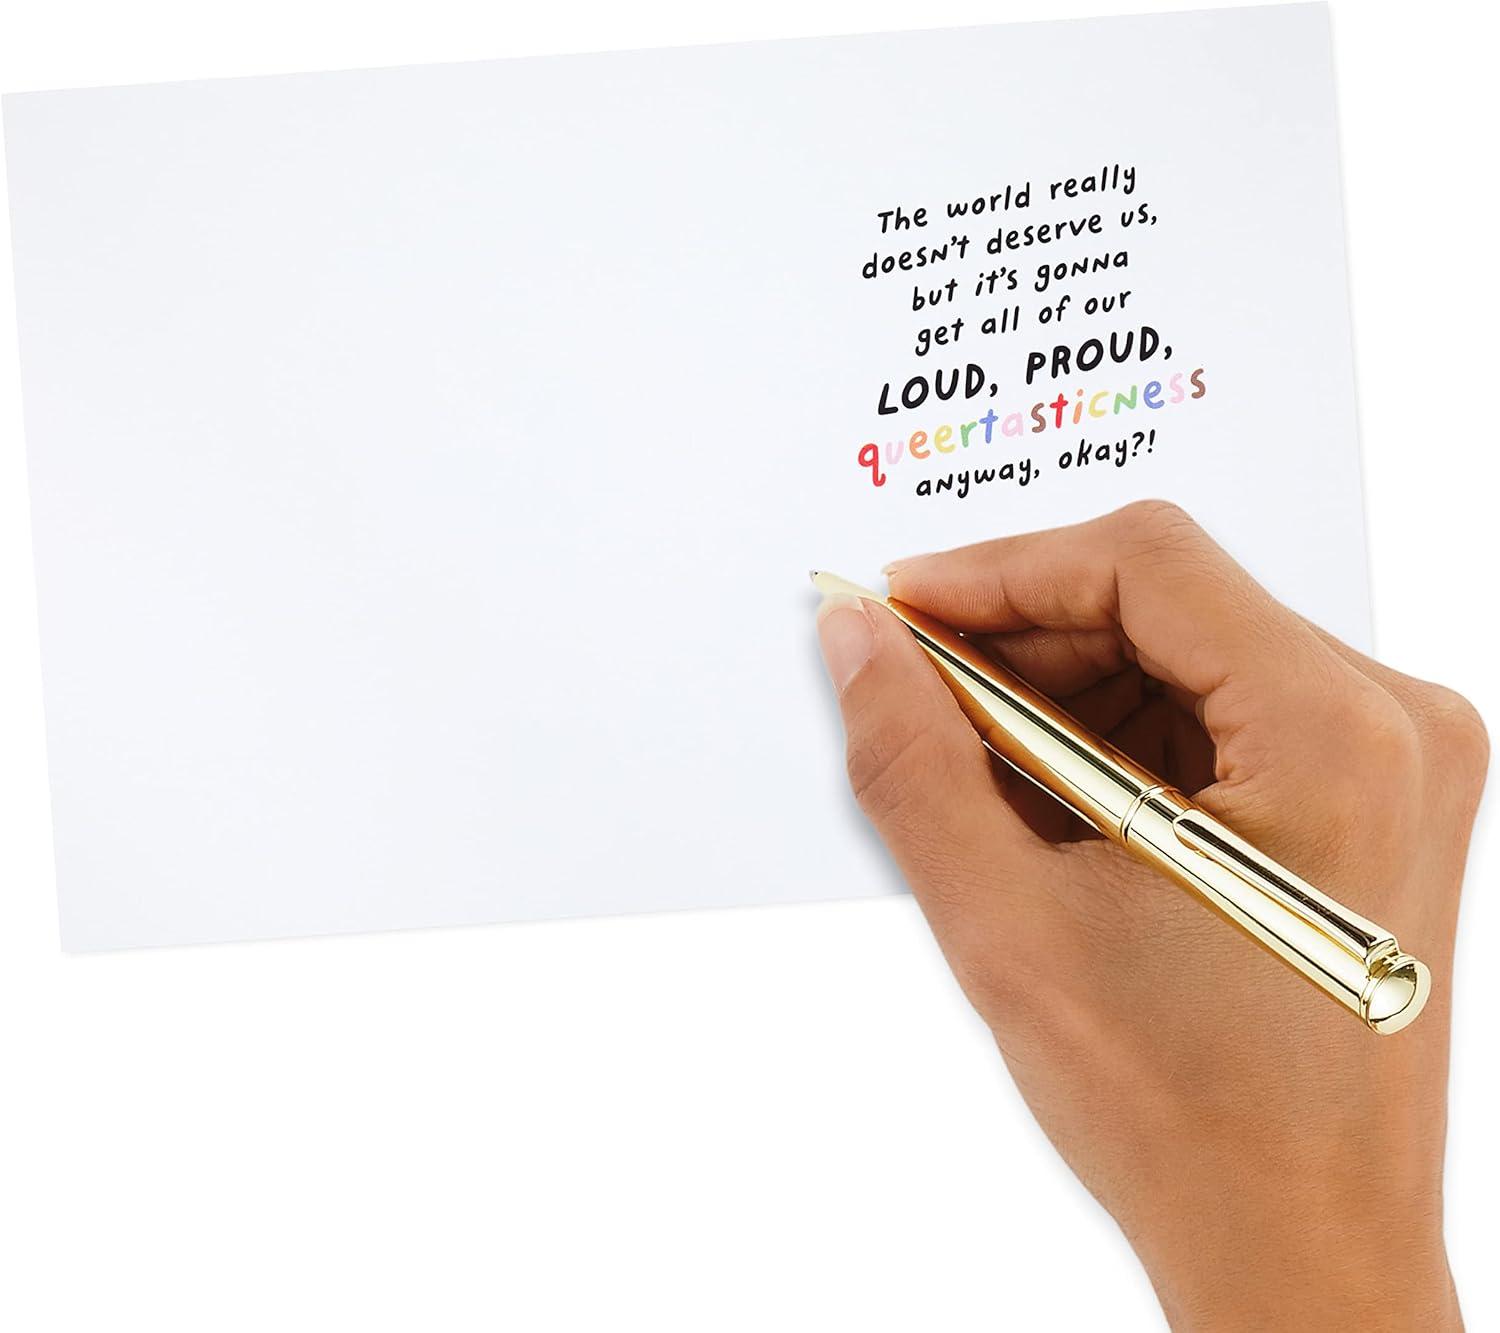 The world really
doesn't deserve us,
but it's gonna
get all of our
LOUD, PROUD,
queertasticness
anyway, okay?!